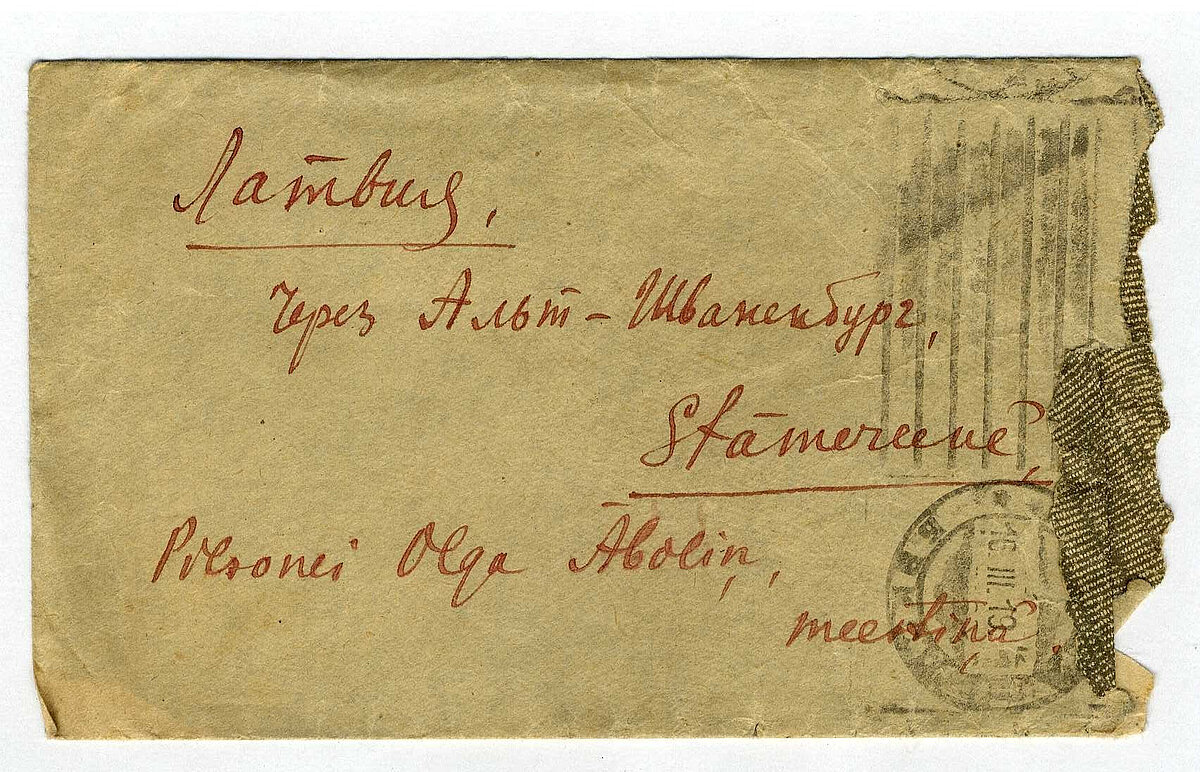 Латвия,
Через Альт-Шваненбург,
Stāmereenē,
Pilsonei Olga Āboliņ,
meestiņā.
16 III. 19